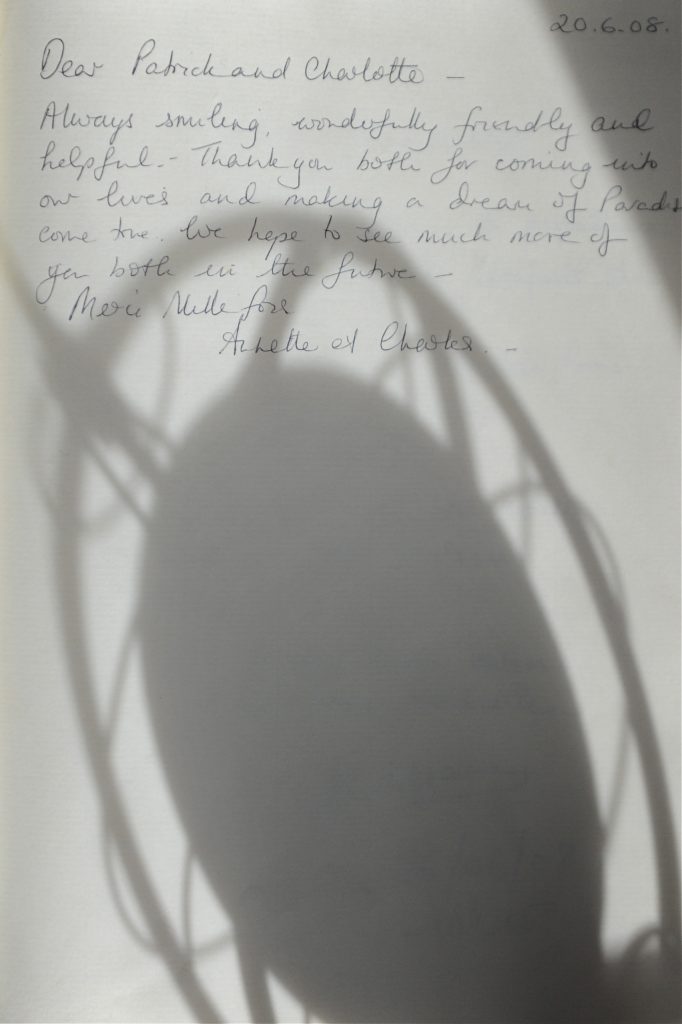 20.6.08.
Dear Patrick and Charlotte -
Always smiling, wonderfully friendly and
helpful.- Thank you both for coming into
our lives and making a dream of Paradis
come true. We hope to see much more of
you both in the future -
Merci Mille fois
Annette et Charles. -